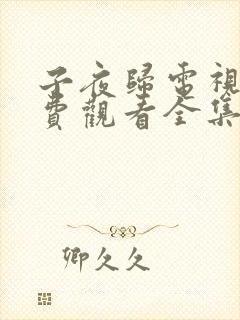 子夜歸電視
費觀看全集
卿久久